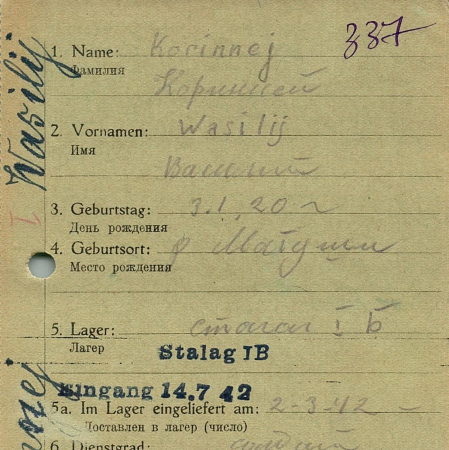 337
Wasilij
1. Name: Korinnej
Фамилия
Коринней
2. Vornamen: Wasilij
Имя
Василий
3. Geburtstag: 3.1.20
День рождения
4. Geburtsort:
Место рождения
5. Lager: сталаг I Б
Лагер
Stalag IB
Eingang 14.7 42
5a. Im Lager eingeliefert am: 2-3-42
Доставлен в лагер (число)
6. Dienstgrad: